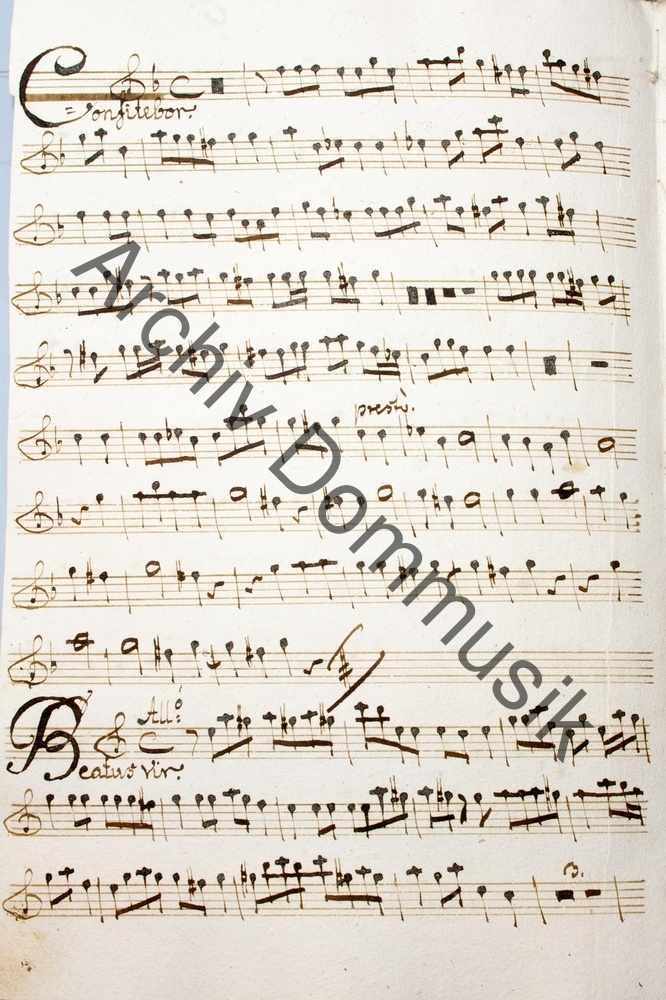 Confitebor.
prestò.
All:º
Beatus vir.
3.
Archiv Dommusik